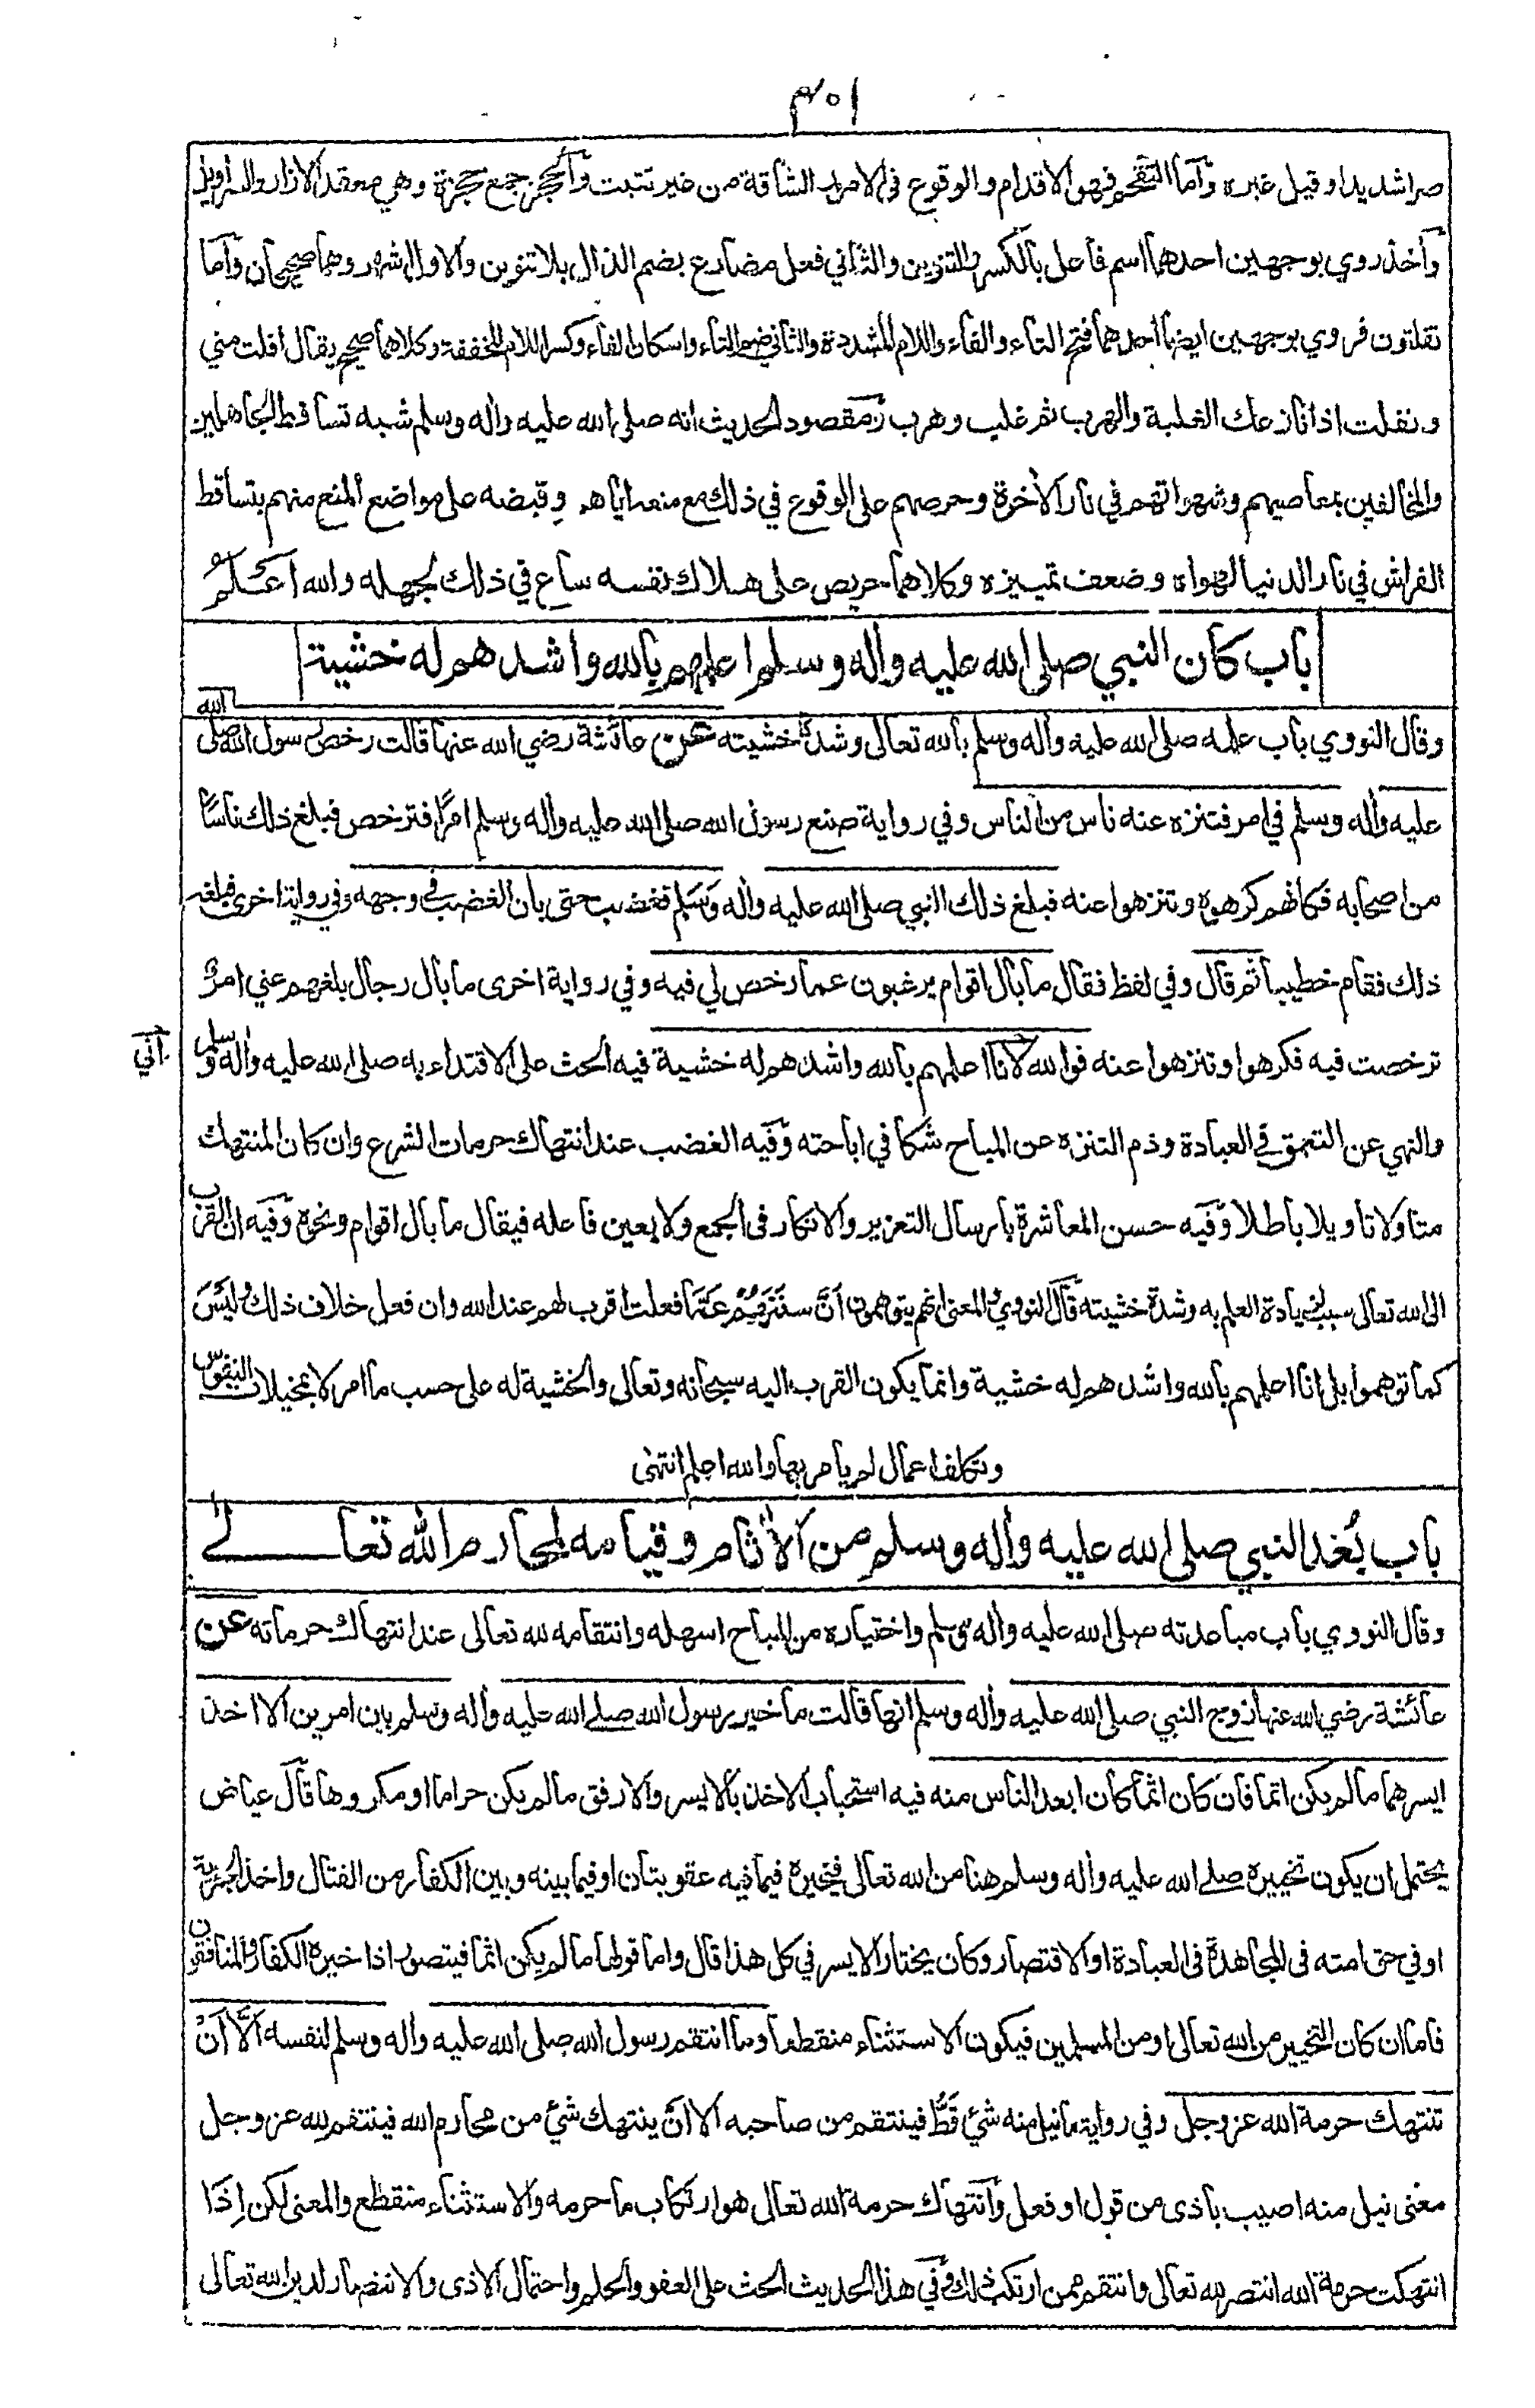 ٣٥١
صرا شديدا وقيل غيره وأما التقحم فهو الاقدام والوقوع في الامور الشاقة من غير تثبت وألحجز جمع حجزة وهي معقد الازار والسراويل
وأخذ روي بوجهين احدهما اسم فاعل بالكسر والتنوين والثاني فعل مضارع بضم الذال بلا تنوين والاول اشهر وهما صحيحان وأما
تفلتون فروي بوجهين ايضا احدهما فتح التاء والفاء واللام المشددة والثاني ضم التاء واسكان الفاء وكسر اللام المخففة وكلاهما صحيح يقال افلت مني
وتفلت اذا نازعك الغلبة والهرب ثم غلب وهرب ومقصود الحديث انه صلى الله عليه واله وسلم شبه تساقط الجاهلين
والمخالفين بمعاصيهم وشهواتهم في نار الأخرة وحرصهم على الوقوع في ذلك مع منعه اياهم وقبضه على مواضع المنع منهم بتساقط
الفراش في نار الدنيا لهواه وضعف تمييزه وكلاهما حريص على هلاك نفسه ساع في ذلك لجهله والله اعلم
باب كان النبي صلى الله عليه واله وسلم اعلمهم بالله واشدهم له خشية
وقال النووي باب علمه صلى الله عليه واله وسلم بالله تعالى وشدة خشيته عن عائشة رضي الله عنها قالت رخص رسول الله صلى الله
عليه واله وسلم في امر فتنزه عنه ناس من الناس وفي رواية صنع رسول الله صلى الله عليه واله وسلم امرًا فترخص فبلغ ذلك ناسًا
من اصحابه فكانهم كرهوه وتنزهوا عنه فبلغ ذلك النبي صلى الله عليه واله وسلم فغضب حتى بان الغضب في وجهه وفي رواية اخرى فبلغه
ذلك فقام خطيبا ثم قال وفي لفظ فقال ما بال اقوام يرغبون عما رخص لي فيه وفي رواية اخرى ما بال رجال بلغهم عني امرٌ
ترخصت فيه فكرهوا وتنزهوا عنه فوالله لانا اعلمهم بالله واشدهم له خشية فيه الحث على الاقتداء به صلى الله عليه واله وسلم
أني
والنهي عن التعمق في العبادة وذم التنزه عن المباح شكا في اباحته وفيه الغضب عند انتهاك حرمات الشرع وان كان المنتهك
متاولا تاويلا باطلا وفيه حسن المعاشرة بارسال التعزير والانكار في الجمع ولا يعين فاعله فيقال ما بال اقوام ونحوه وفيه ان القرب
الى الله تعالى سبب زيادة العلم به وشدة خشيته قال النووي المعنى انهم يتوهمون أن سننزههم عما فعلت اقرب لهم عند الله وان فعل خلاف ذلك وليس
كما توهموا بل انا اعلمهم بالله واشدهم له خشية وانما يكون القرب اليه سبحانه وتعالى والخشية له على حسب ما امر لا بمخيلات النفوس
وتكلف اعمال لم يامر بها والله اعلم انتهى
باب بُعد النبي صلى الله عليه واله وسلم من الأثام وقيامه لمحارم الله تعالى
وقال النووي باب مباعدته صلى الله عليه واله وسلم واختياره من المباح اسهله وانتقامه لله تعالى عند انتهاك حرماته عن
عائشة رضي الله عنها زوج النبي صلى الله عليه واله وسلم انها قالت ما خير رسول الله صلى الله عليه واله وسلم بين امرين الا اخذ
ايسرهما ما لم يكن اثما فان كان اثما كان ابعد الناس منه فيه استحباب الاخذ بالايسر والارفق ما لم يكن حراما او مكروها قال عياض
يحتمل ان يكون تخييره صلى الله عليه واله وسلم هنا من الله تعالى فيخيره فيما فيه عقوبتان او فيما بينه وبين الكفار من القتال واخذ الجزية
او في حق امته في المجاهدة في العبادة او الاقتصار وكان يختار الايسر في كل هذا قال واما قولها ما لم يكن اثما فيتصور اذا خيره الكفار والمنافقون
فاما ان كان التخيير من الله تعالى او من المسلمين فيكون الاستثناء منقطعا وما انتقم رسول الله صلى الله عليه واله وسلم لنفسه الا أن
تنتهك حرمة الله عز وجل وفي رواية ما نيل منه شيء قطُّ فينتقم من صاحبه الا ان ينتهك شيء من محارم الله فينتقم لله عز وجل
معنى نيل منه اصيب باذى من قول او فعل وانتهاك حرمة الله تعالى هو ارتكاب ما حرمه والاستثناء منقطع والمعنى لكن اذا
انتهكت حرمة الله انتصر لله تعالى وانتقم ممن ارتكب ذلك وفي هذا الحديث الحث على العفو والحلم واحتمال الاذى والانتصار لدين الله تعالى